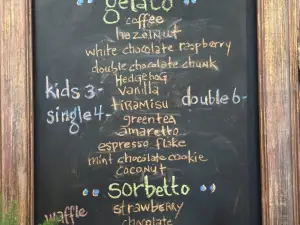 gelato
coffee
hazelnut
white chocolate raspberry
double chocolate chunk
Hedgehog
kids 3-
vanilla
single 4-
tiramisu
double 6-
greentea
amaretto
espresso flake
mint chocolate cookie
coconut
sorbetto
waffle
strawberry
chocolate